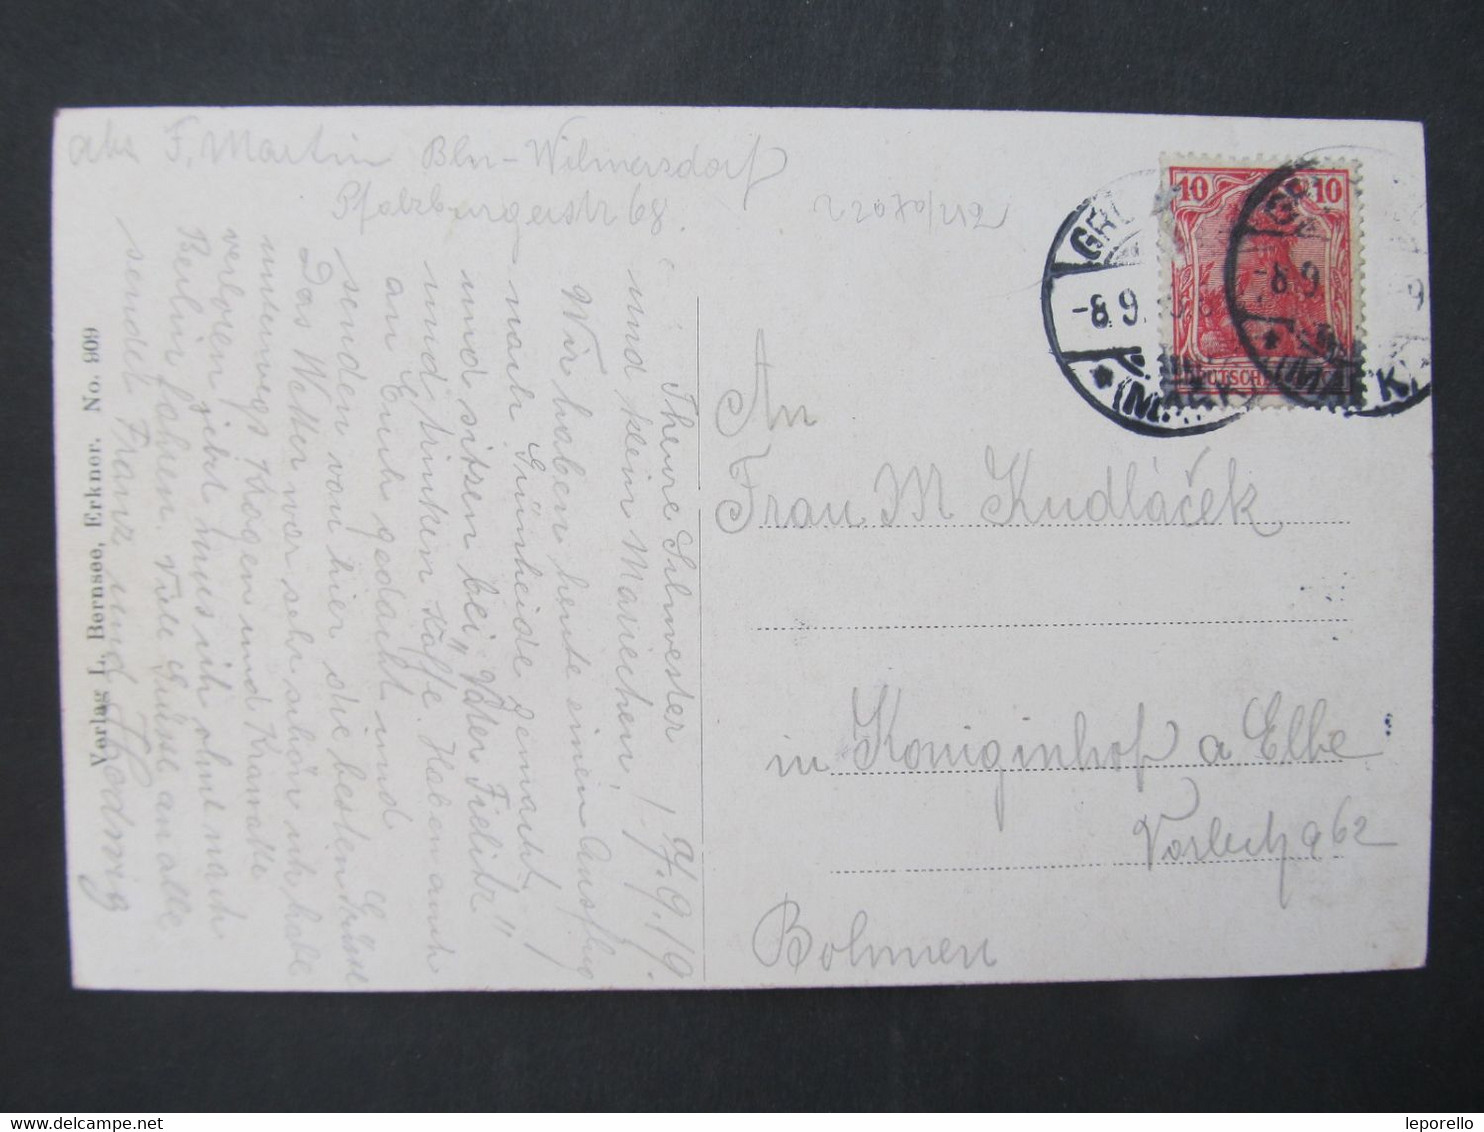 abs F. Martin Bln-Wilmersdorf
Pfalzburgerstr 68.
7.9.19.
Theure Schwester
und klein Mariechen!
Wir haben heute einen Ausflug
nach Grünheide gemacht
und sitzen bei „Vater Fielitz"
und trinken Kaffe. Haben auch
an Euch gedacht und
senden von hier die besten Grüsse
Das Wetter war sehr schön ich habe
unterwegs Kragen und Kravatte
verloren jetzt muss ich ohne nach
Berlin fahren. Viele Grüsse an alle
sendet Franz und Hedwig
Verlag L. Bernsee, Erkner. No. 809
10 10
DEUTSCHES
GRÜ
-8.9.
(MARK)
GR
-8.9
(MARK)
An
Frau M Kudláček
in Königinhof a Elbe
962
Bohmen
leporello